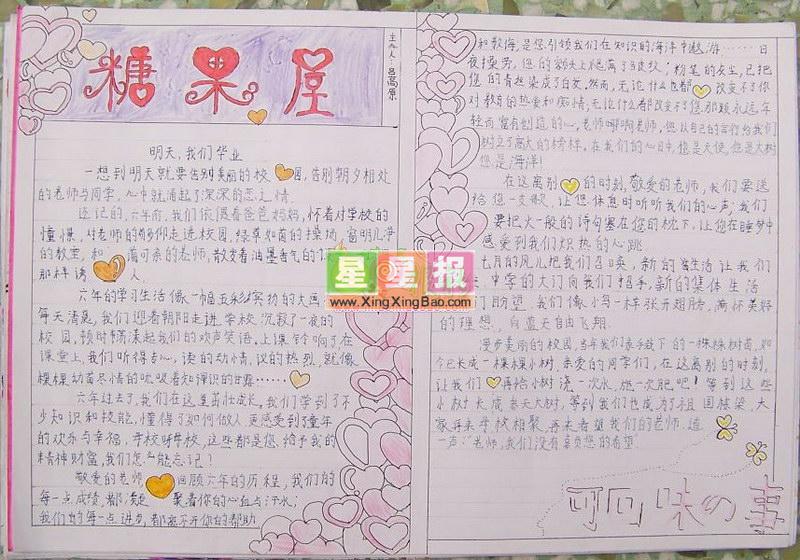 糖果屋
主人:吕高原
明天,我们毕业
一想到明天就要告别美丽的校园,告别朝夕相处
的老师与同学,心中就涌起了深深的恋之情
还记的,六年前,我们依偎着爸爸妈妈,怀着对学校的
憧憬,对老师的仰仰走进校园,绿草如茵的操场,窗明儿净
的教室,和蔼可亲的老师,散发着油墨香气的
那样诱人
六年的学习生活像一幅五彩宾纷的大画
每天清晨,我们迎着朝阳走进学校沉寂了一夜的
校园,顿时荡漾起我们的欢声笑语,上课铃响了在
课堂上,我们听得专心,读的动情,议的热烈,就像
棵棵幼苗尽情的吮吸着知识的甘露……
六年过去了,我们在这里茁壮成长,我们学到了不
少知识和技能,懂得了如何做人更感受到了童年
的欢乐与幸福,学校呀学校,这些都是您给予我的
精神财富,我们怎能忘记?
敬爱的老师回顾六年的历程,我们的
每一点成绩,都凝聚着你的心血与汗水;
我们的每一点进步,都离不开你的帮助
和教悔,是您引领我们在知识的海洋中遨游……日
夜操劳,您的额头上爬满了皱纹;粉笔的灰尘,已把
您的青丝染成了白发,然而,无论什么也都改变不了你
对教育的热爱和痴情,无论什么都改变不了您那颗永远年
轻而富有创造的心,老师啊老师,您以自己的言行给我们
树立了高大的榜样,在我们的心目中,您是天使,但是大树
您是海洋!
在这离别的时刻,敬爱的老师,我们要送
给您一支歌,让您休息时听听我们的心声;我们
要把火一般的诗句塞在您的枕下,让您在睡梦中
感受到我们炽热的心跳
七月的风儿把我们召唤,新的生活让我们
中学的大门向我们招手,新的集体生活
们盼望,我们像小鸟一样张开翅膀,满怀美好
的理想,向蓝天自由飞翔.
漫步美丽的校园,当年我们亲手栽下的一棵棵树苗,如
今已长成一棵棵小树.亲爱的同学们,在这离别的时刻,
让我们再给小树浇一次水,施一次肥吧!等到这些
小树长成参天大树,等到我们也成为了祖国栋梁,大
家再来学校相聚,再来看望我们的老师.道
一声:"老师,我们没有辜负您的希望"
可可味の事
星星报
www.XingXingBao.com